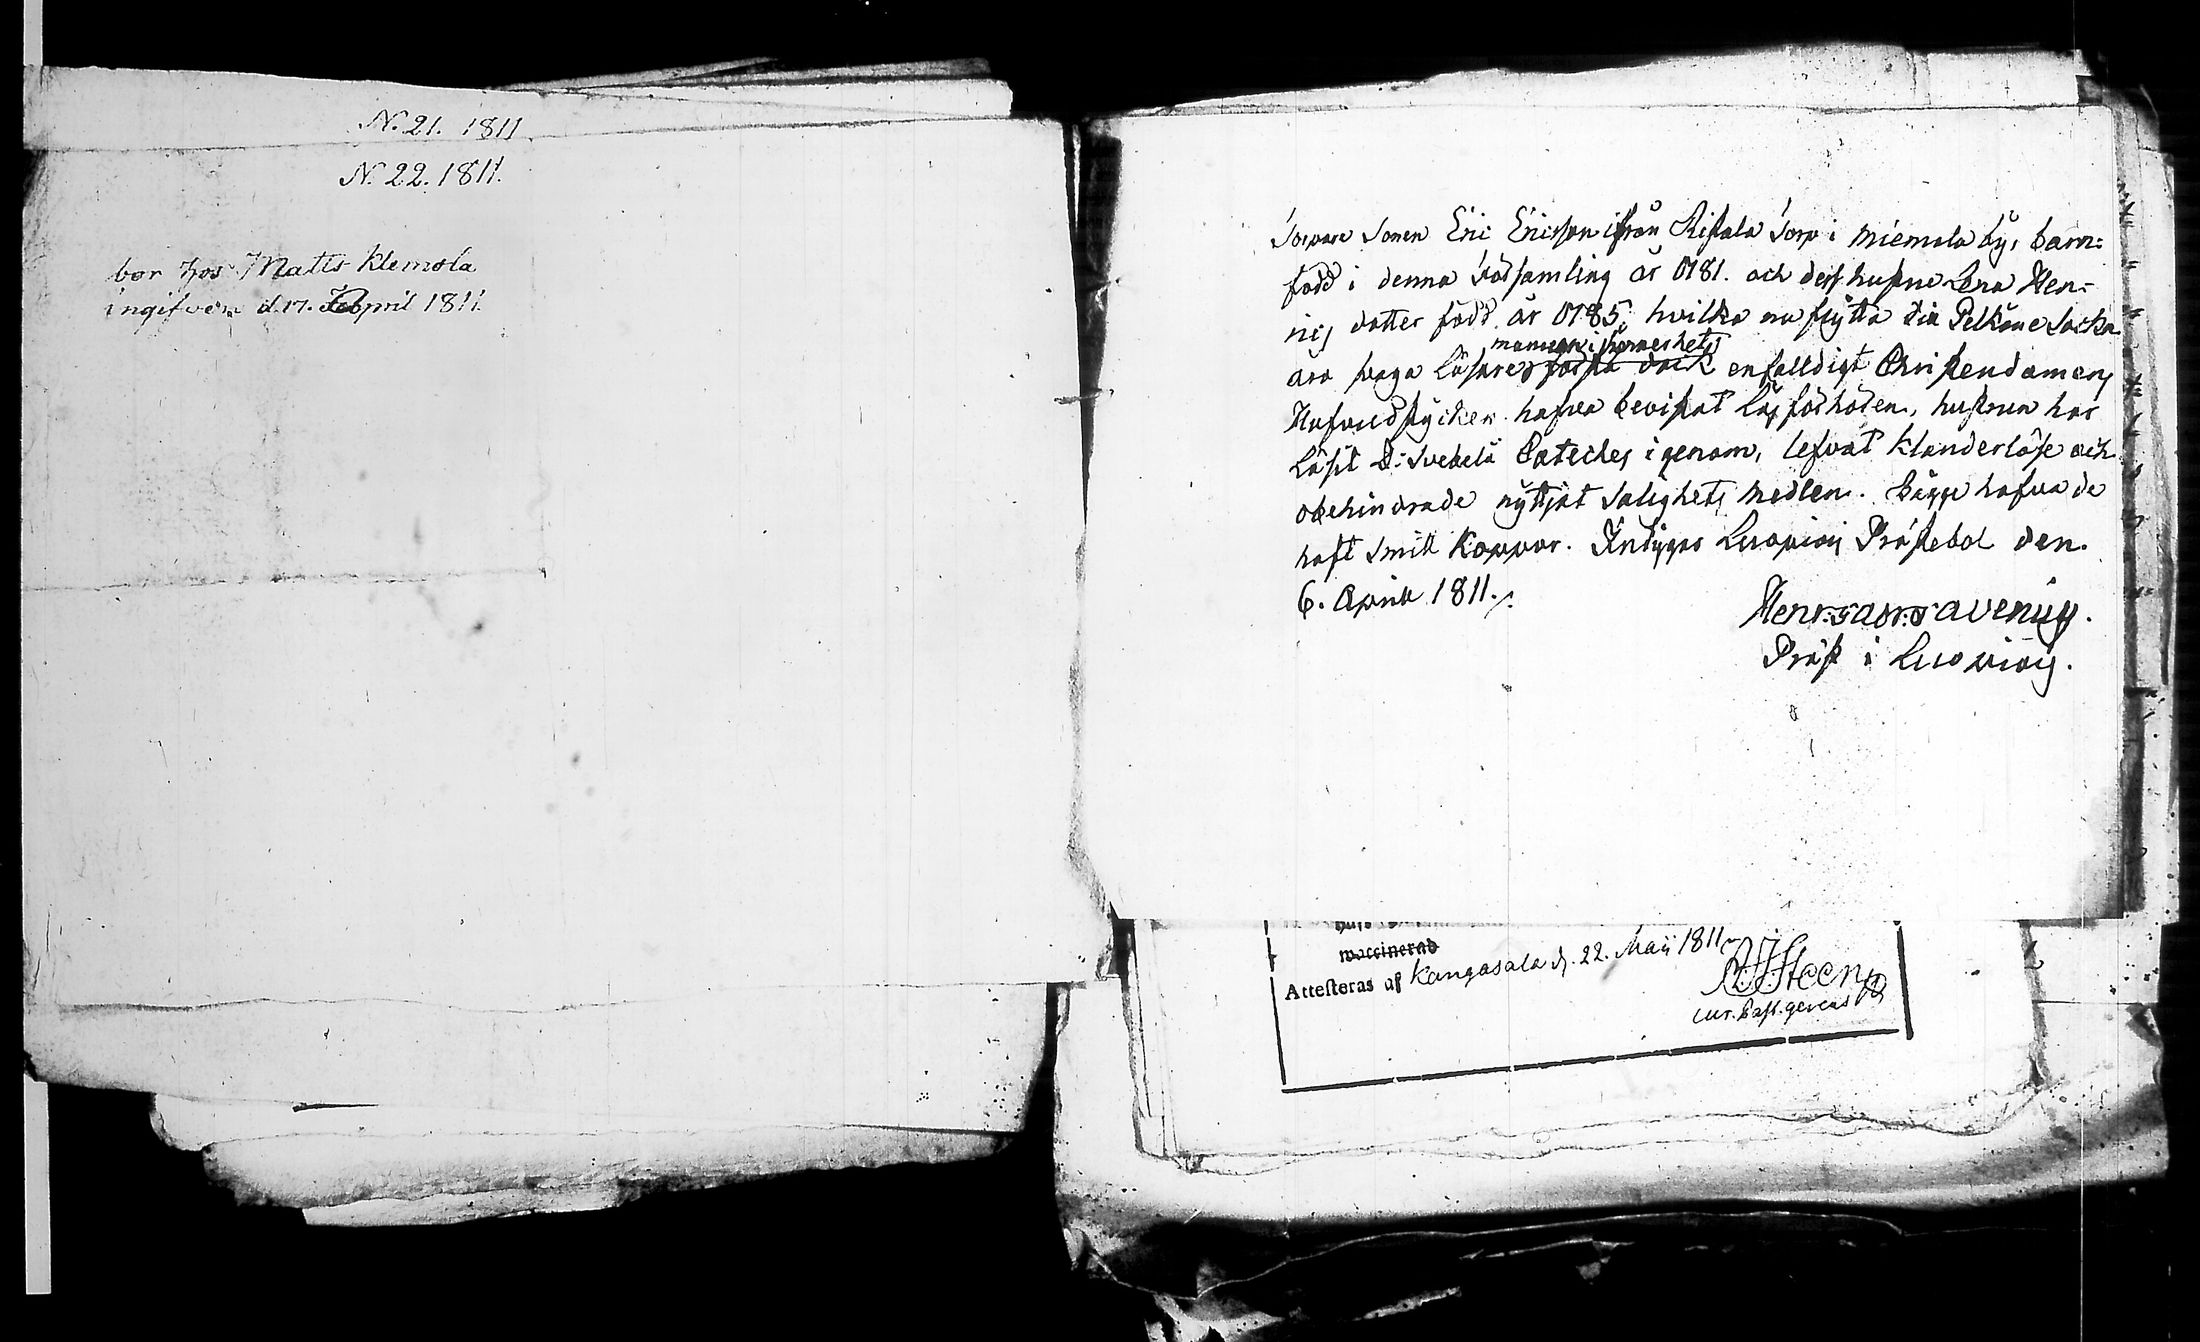 N. 21. 1811
N. 22. 1811.
bor hos Matts Klemola
ingifven d. 17. April 1811.
Torpare Sonen Eric Ericsson ifrån Ristala Torp i Miemola by, barn-
född i denna Församling år 0781. och dess hustru Lena Hen-
rics dotter född år 0785, hvilka nu flytta till Pelkäne Sockn
mannen i synnerhet
äro svaga Läsare, förstå dock enfalldigt Christendomens
Hufvudstycken hafva bevistat Läsförhören, hustrun har
Läsit D: Svebelii Cateches igenom, lefvat klanderlöse och
obehindrade nyttjat Salighets medlen. Bägge hafva de
haft Smitt Koppor. Intygas Luopiois Prästebol den.
6. April 1811./.
Henr: Gabr: Gavenius.
Präst i Luopiois.
vaccinerad
Attesteras af Kangasala d. 22. Maij 1811
Steen
cur. Past. gerens